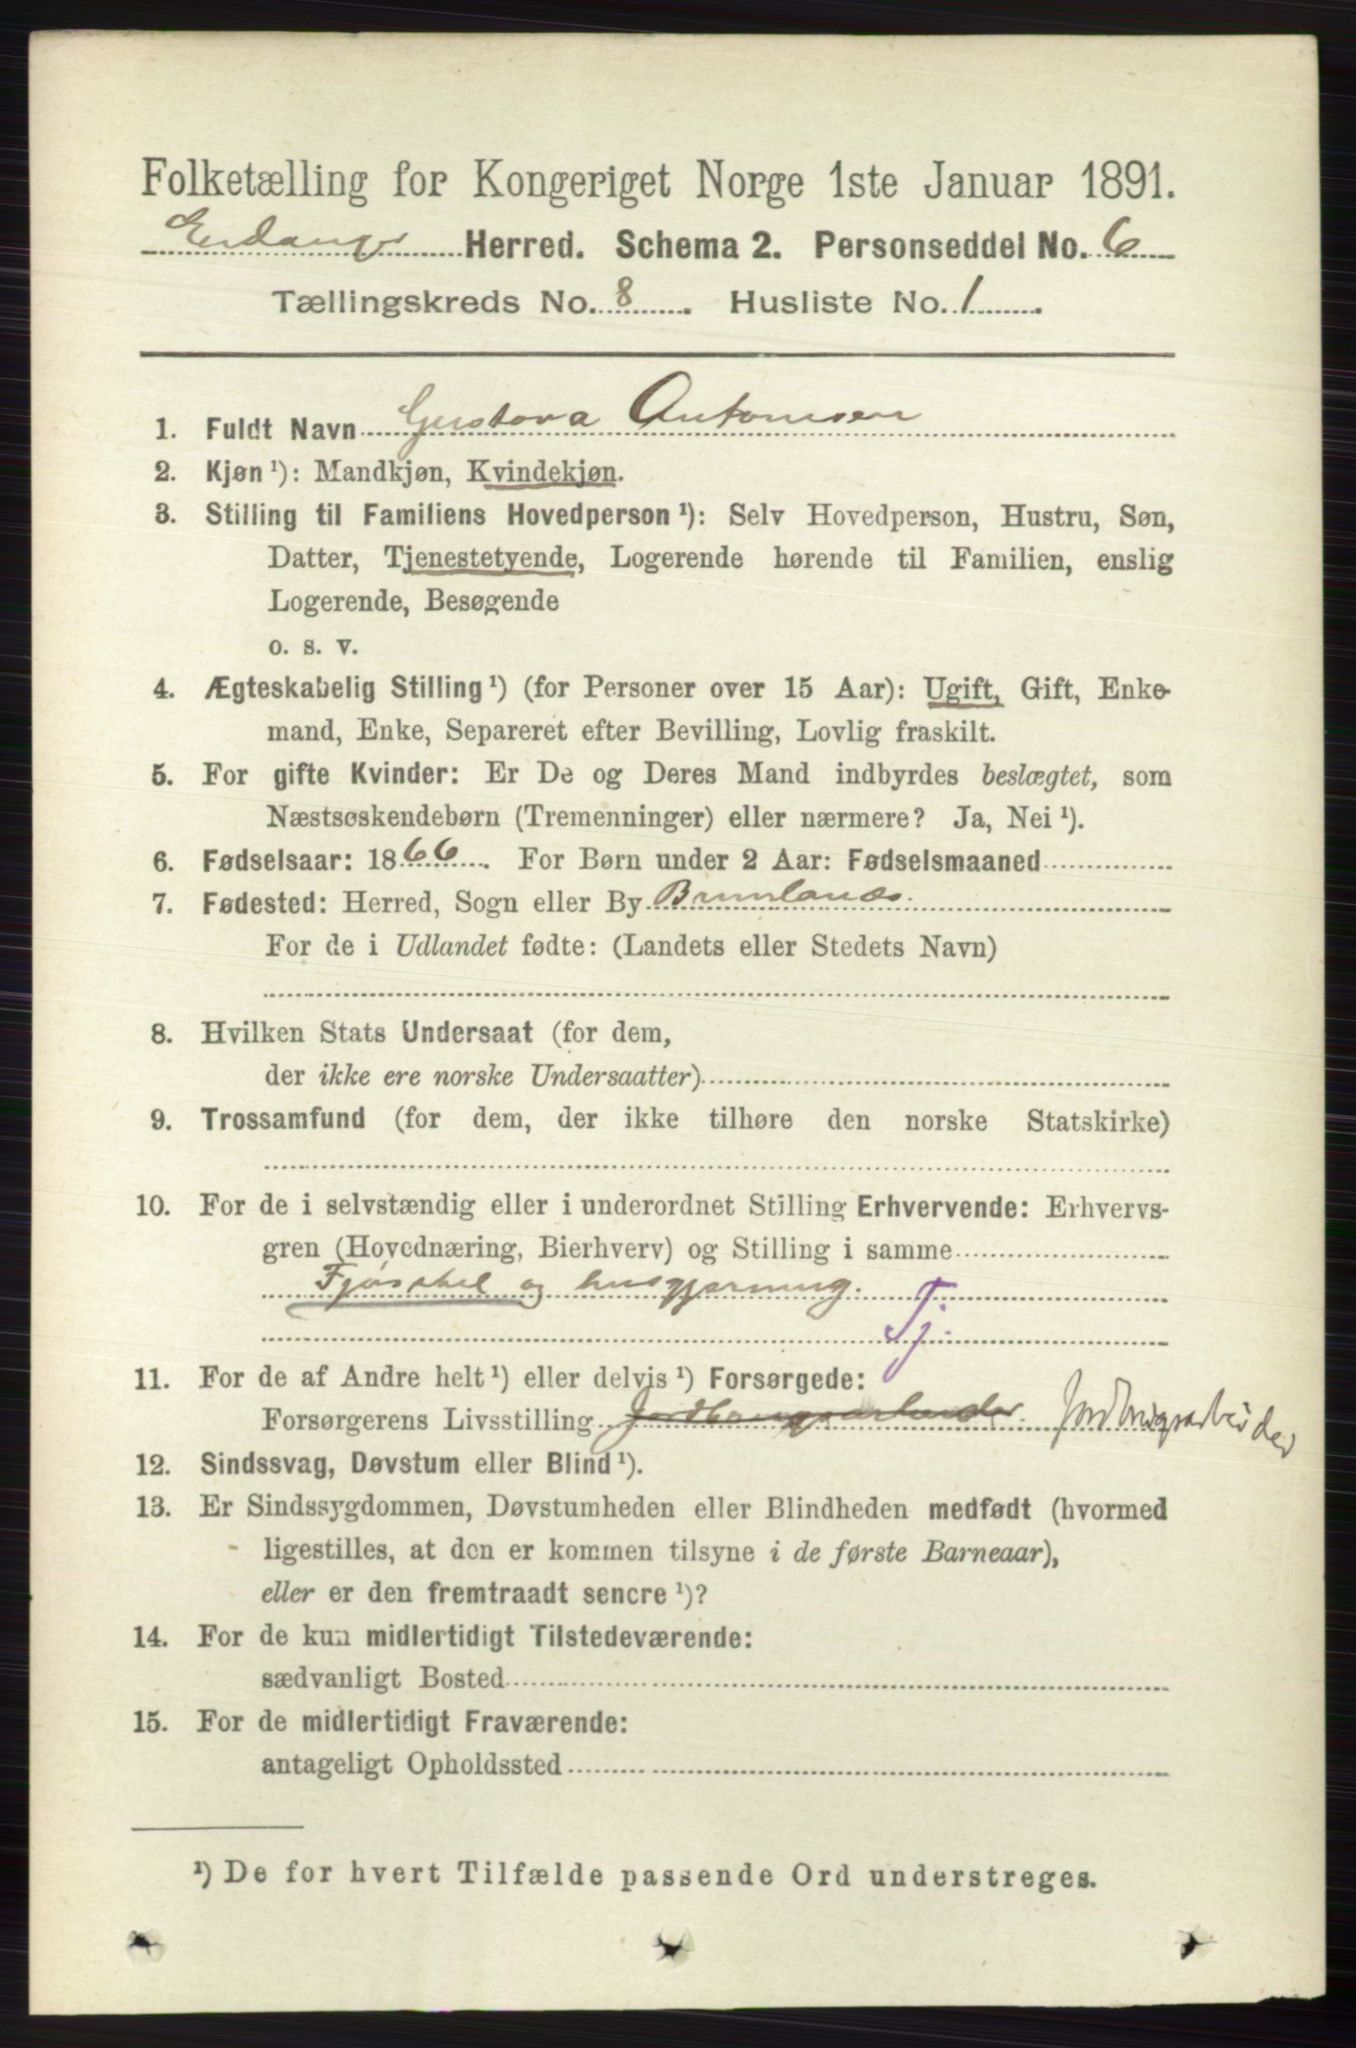 Folketælling for Kongeriget Norge 1ste Januar 1891.
Eidanger Herred. Schema 2. Personseddel No. 6
Tællingskreds No. 8. Husliste No. 1.
1. Fuldt Navn Gustava Antonsen
2. Kjøn ¹): Mandkjøn, Kvindekjøn.
3. Stilling til Familiens Hovedperson ¹): Selv Hovedperson, Hustru, Søn,
Datter, Tjenestetyende, Logerende hørende til Familien, enslig
Logerende, Besøgende
o. s. v.
4. Ægteskabelig Stilling ¹) (for Personer over 15 Aar): Ugift, Gift, Enke-
mand, Enke, Separeret efter Bevilling, Lovlig fraskilt.
5. For gifte Kvinder: Er De og Deres Mand indbyrdes beslægtet, som
Næstsøskendebørn (Tremenninger) eller nærmere? Ja, Nei ¹).
6. Fødselsaar: 1866. For Børn under 2 Aar: Fødselsmaaned
7. Fødested: Herred, Sogn eller By Brunlanæs.
For de i Udlandet fødte: (Landets eller Stedets Navn)
8. Hvilken Stats Undersaat (for dem,
der ikke ere norske Undersaatter)
9. Trossamfund (for dem, der ikke tilhøre den norske Statskirke)
10. For de i selvstændig eller i underordnet Stilling Erhvervende: Erhvervs-
gren (Hovednæring, Bierhverv) og Stilling i samme
Fjøsstel og husgjerning.
Tj.
11. For de af Andre helt ¹) eller delvis ¹) Forsørgede:
Forsørgerens Livsstilling Jordbrugsarbeider. Jordbrugsarbeider
12. Sindssvag, Døvstum eller Blind ¹).
13. Er Sindssygdommen, Døvstumheden eller Blindheden medfødt (hvormed
ligestilles, at den er kommen tilsyne i de første Barneaar),
eller er den fremtraadt senere ¹)?
14. For de kun midlertidigt Tilstedeværende:
sædvanligt Bosted
15. For de midlertidigt Fraværende:
antageligt Opholdssted
¹) De for hvert Tilfælde passende Ord understreges.